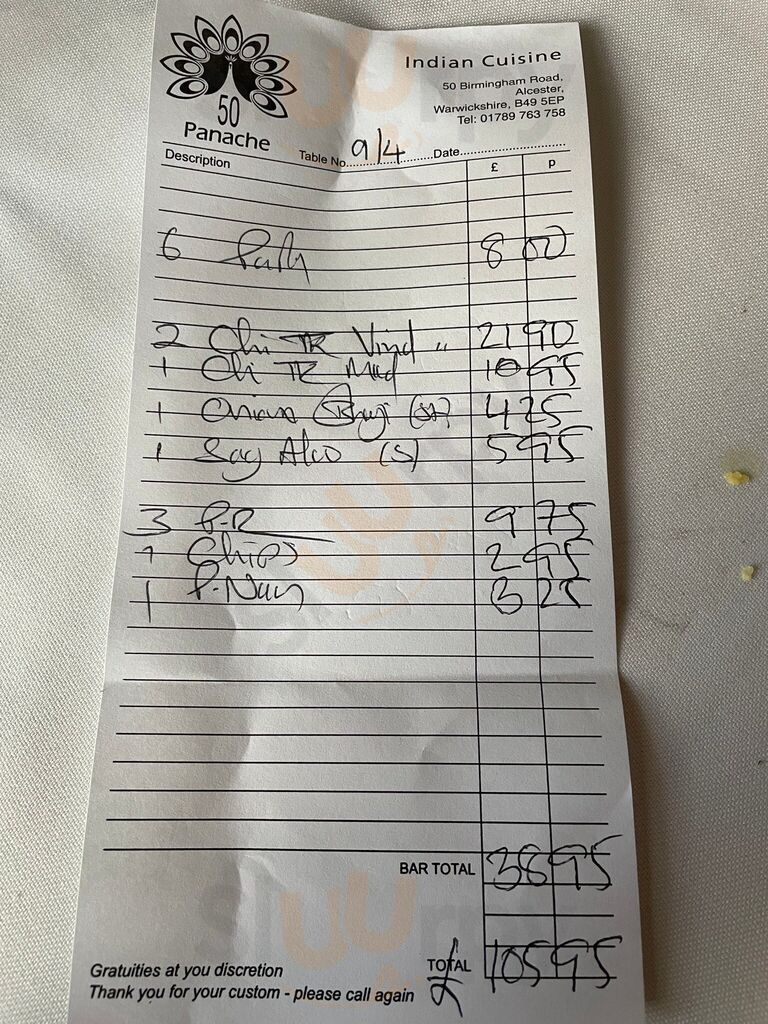 50
Panache
Indian Cuisine
50 Birmingham Road,
Alcester,
Warwickshire, B49 5EP
Tel: 01789 763 758
Table No. 9/4 Date
Description £ p
6 8 00
2 Chi TK Vind " 21 90
1 Chi TK Mad 10 95
1 Onion Bhaji 4 25
1 Sag Aloo (S) 5 95
3 P-R 9 75
1 Chips 2 95
1 P-Nan 3 25
BAR TOTAL 38 95
TOTAL £ 105 95
Gratuities at you discretion
Thank you for your custom - please call again